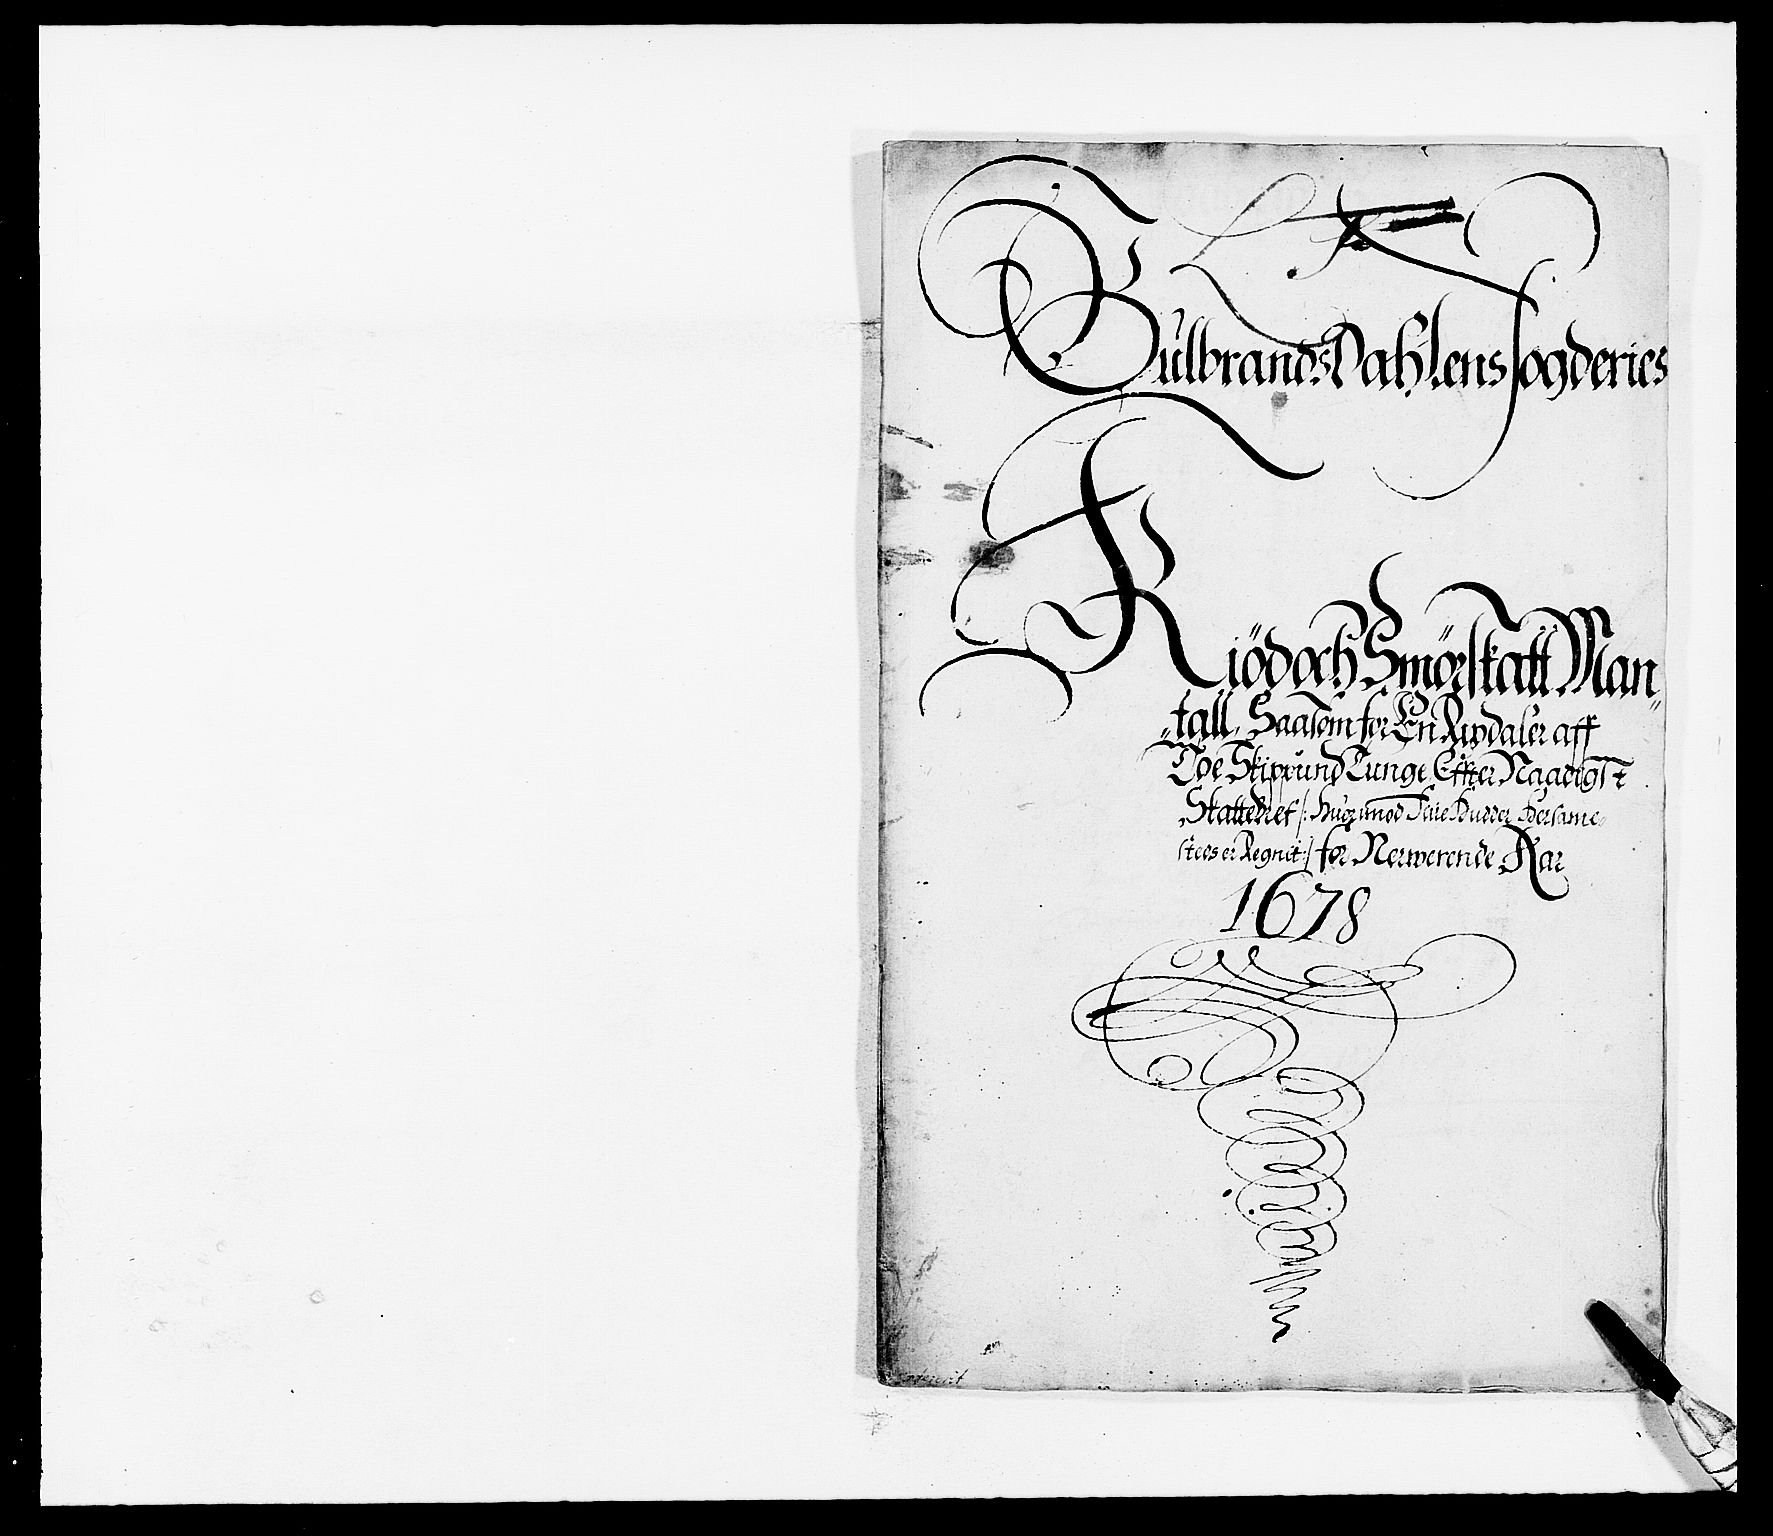 GülbrandsDahlens fogderies
Kiödoch Smörskatt Man
tall, Saasom for En Rixdaler aff
Toe Skippund Tunge Effter Naadigst
Skattebref /: huor imod Fiire Hudder
steds er Regnit :/ for Nerwerende Aar
1678